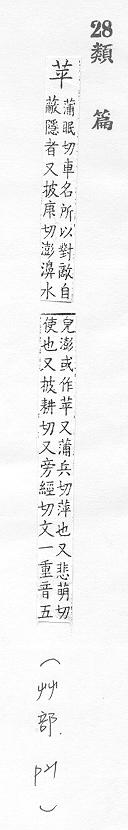 28
類篇
苹
蒲眠切車名所以對敵自
蔽隱者又披庚切澎濞水
皃澎或作苹又蒲兵切萍也又悲萌切
使也又披耕切又旁經切文一重音五
（艸部. ）